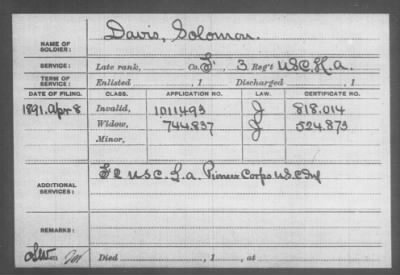 NAME OF SOLDIER: Davis, Solomon.
SERVICE: Late rank, Co. 3 Reg't U.S.C.H.A.
TERM OF SERVICE: Enlisted , 1 Discharged , 1
DATE OF FILING. CLASS. APPLICATION NO. LAW. CERTIFICATE NO.
1891, Apr. 8 Invalid, 1011493 J 818.014
Widow, 744.837 J 524.873
Minor,
ADDITIONAL SERVICES: U.S.C. Pioneer Corps U.S.C. Inf
REMARKS:
Died , 1 , at